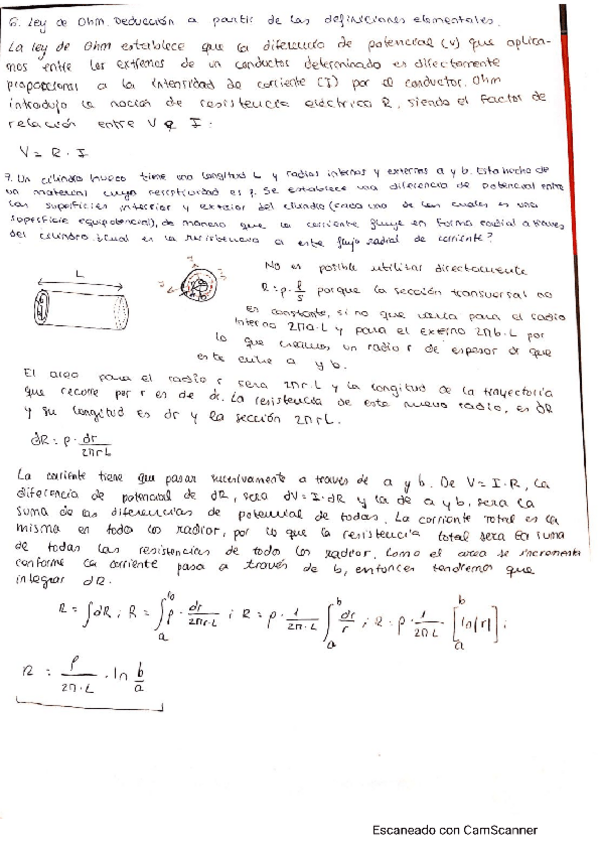 6. Ley de Ohm. Deducción a partir de las definiciones elementales.
La ley de Ohm establece que la diferencia de potencial (V) que aplica-
mos entre los extremos de un conductor determinado es directamente
proporcional a la intensidad de corriente (I) por el conductor. Ohm
introdujo la noción de resistencia eléctrica R, siendo el factor de
relación entre V e I:
V = R · I
7. Un cilindro hueco tiene una longitud L y radios internos y externos a y b. Esta hecho de
un material cuya resistividad es ρ. Se establece una diferencia de potencial entre
las superficies interior y exterior del cilindro (cada una de las cuales es una
superficie equipotencial), de manera que la corriente fluye en forma radial a traves
del cilindro. ¿Cual es la resistencia a este flujo radial de corriente?
L
No es posible utilizar directamente
R = ρ · l/S porque la sección transversal no
es constante, si no que varia para el radio
interno 2πa·L y para el externo 2πb·L por
lo que creamos un radio r de espesor dr que
este entre a y b.
El area para el radio r sera 2πr·L y la longitud de la trayectoria
que recorre por r es de dr. La resistencia de este nuevo radio, es dR
y su longitud es dr y la sección 2πrL.
dR = ρ · dr/2πrL
La corriente tiene que pasar sucesivamente a traves de a y b. De V = I·R, la
diferencia de potencial de dR, sera dV = I·dR y la de a y b, sera la
suma de las diferencias de potencial de todas. La corriente total es la
misma en todo los radios, por lo que la resistencia total sera la suma
de todas las resistencias de todo los radios. Como el area se incrementa
conforme la corriente pasa a través de b, entonces tendremos que
integrar dR.
R = ∫dR ; R = ∫_a^b ρ · dr/2πr·L ; R = ρ · 1/2π·L ∫_a^b dr/r ; R = ρ · 1/2πL [ln|r|]_a^b ;
R = ρ/2π·L · ln b/a
Escaneado con CamScanner